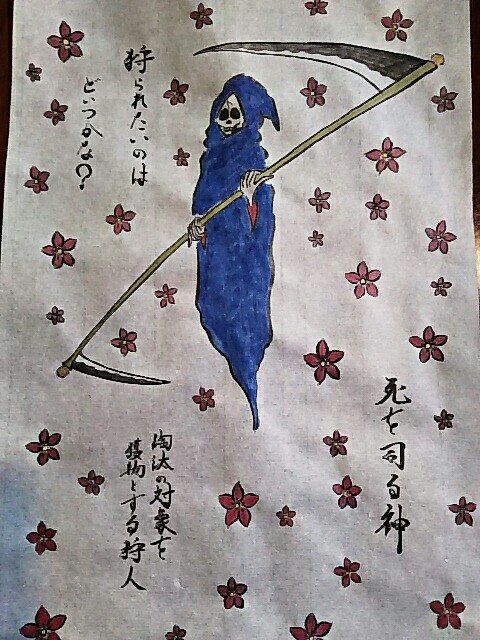 狩られたいのは
どいつかな?
死を司る神
淘汰の対象を
獲物とする狩人